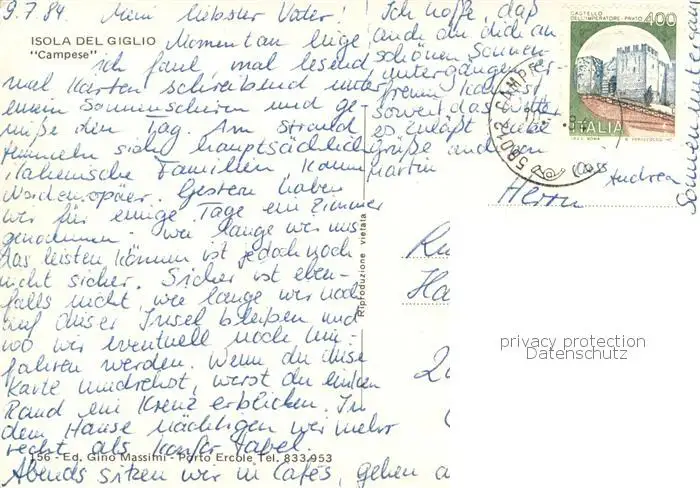 9.7.84. Mein liebster Vater!
ISOLA DEL GIGLIO
"Campese"
Momentan liege
ich faul, mal lesend
mal Karten schreibend unter
einem Sonnenschirm und ge-
nieße den Tag. Am Strand
tummeln sich hauptsächlich
italienische Familien, kaum
Nordeuropäer. Gestern haben
wir für einige Tage ein Zimmer
genommen. Wie lange wir uns
das leisten können ist jedoch noch
nicht sicher. Sicher ist eben-
falls nicht, wie lange wir noch
auf dieser Insel bleiben und
wo wir eventuell noch hin-
fahren werden. Wenn du diese
Karte umdrehst, wirst du am
Rand ein Kreuz erblicken. In
dem Hause nächtigen wir mehr
recht als
156 - Ed. Gino Massimi - Porto Ercole Tel. 833.953
Abends sitzen wir in Cafés, gehen a
Ich hoffe, daß
auch du dich an
schönen Sonnen-
untergängen er-
freuen kannst
soweit das Wetter
es zuläßt. Liebe
Grüße auch von
Martin
Riproduzione vietata
CASTELLO
DELL'IMPERATORE - PRATO
400
ITALIA
58012 CAMP
Andrea
Herrn
Ha
privacy protection
Datenschutz